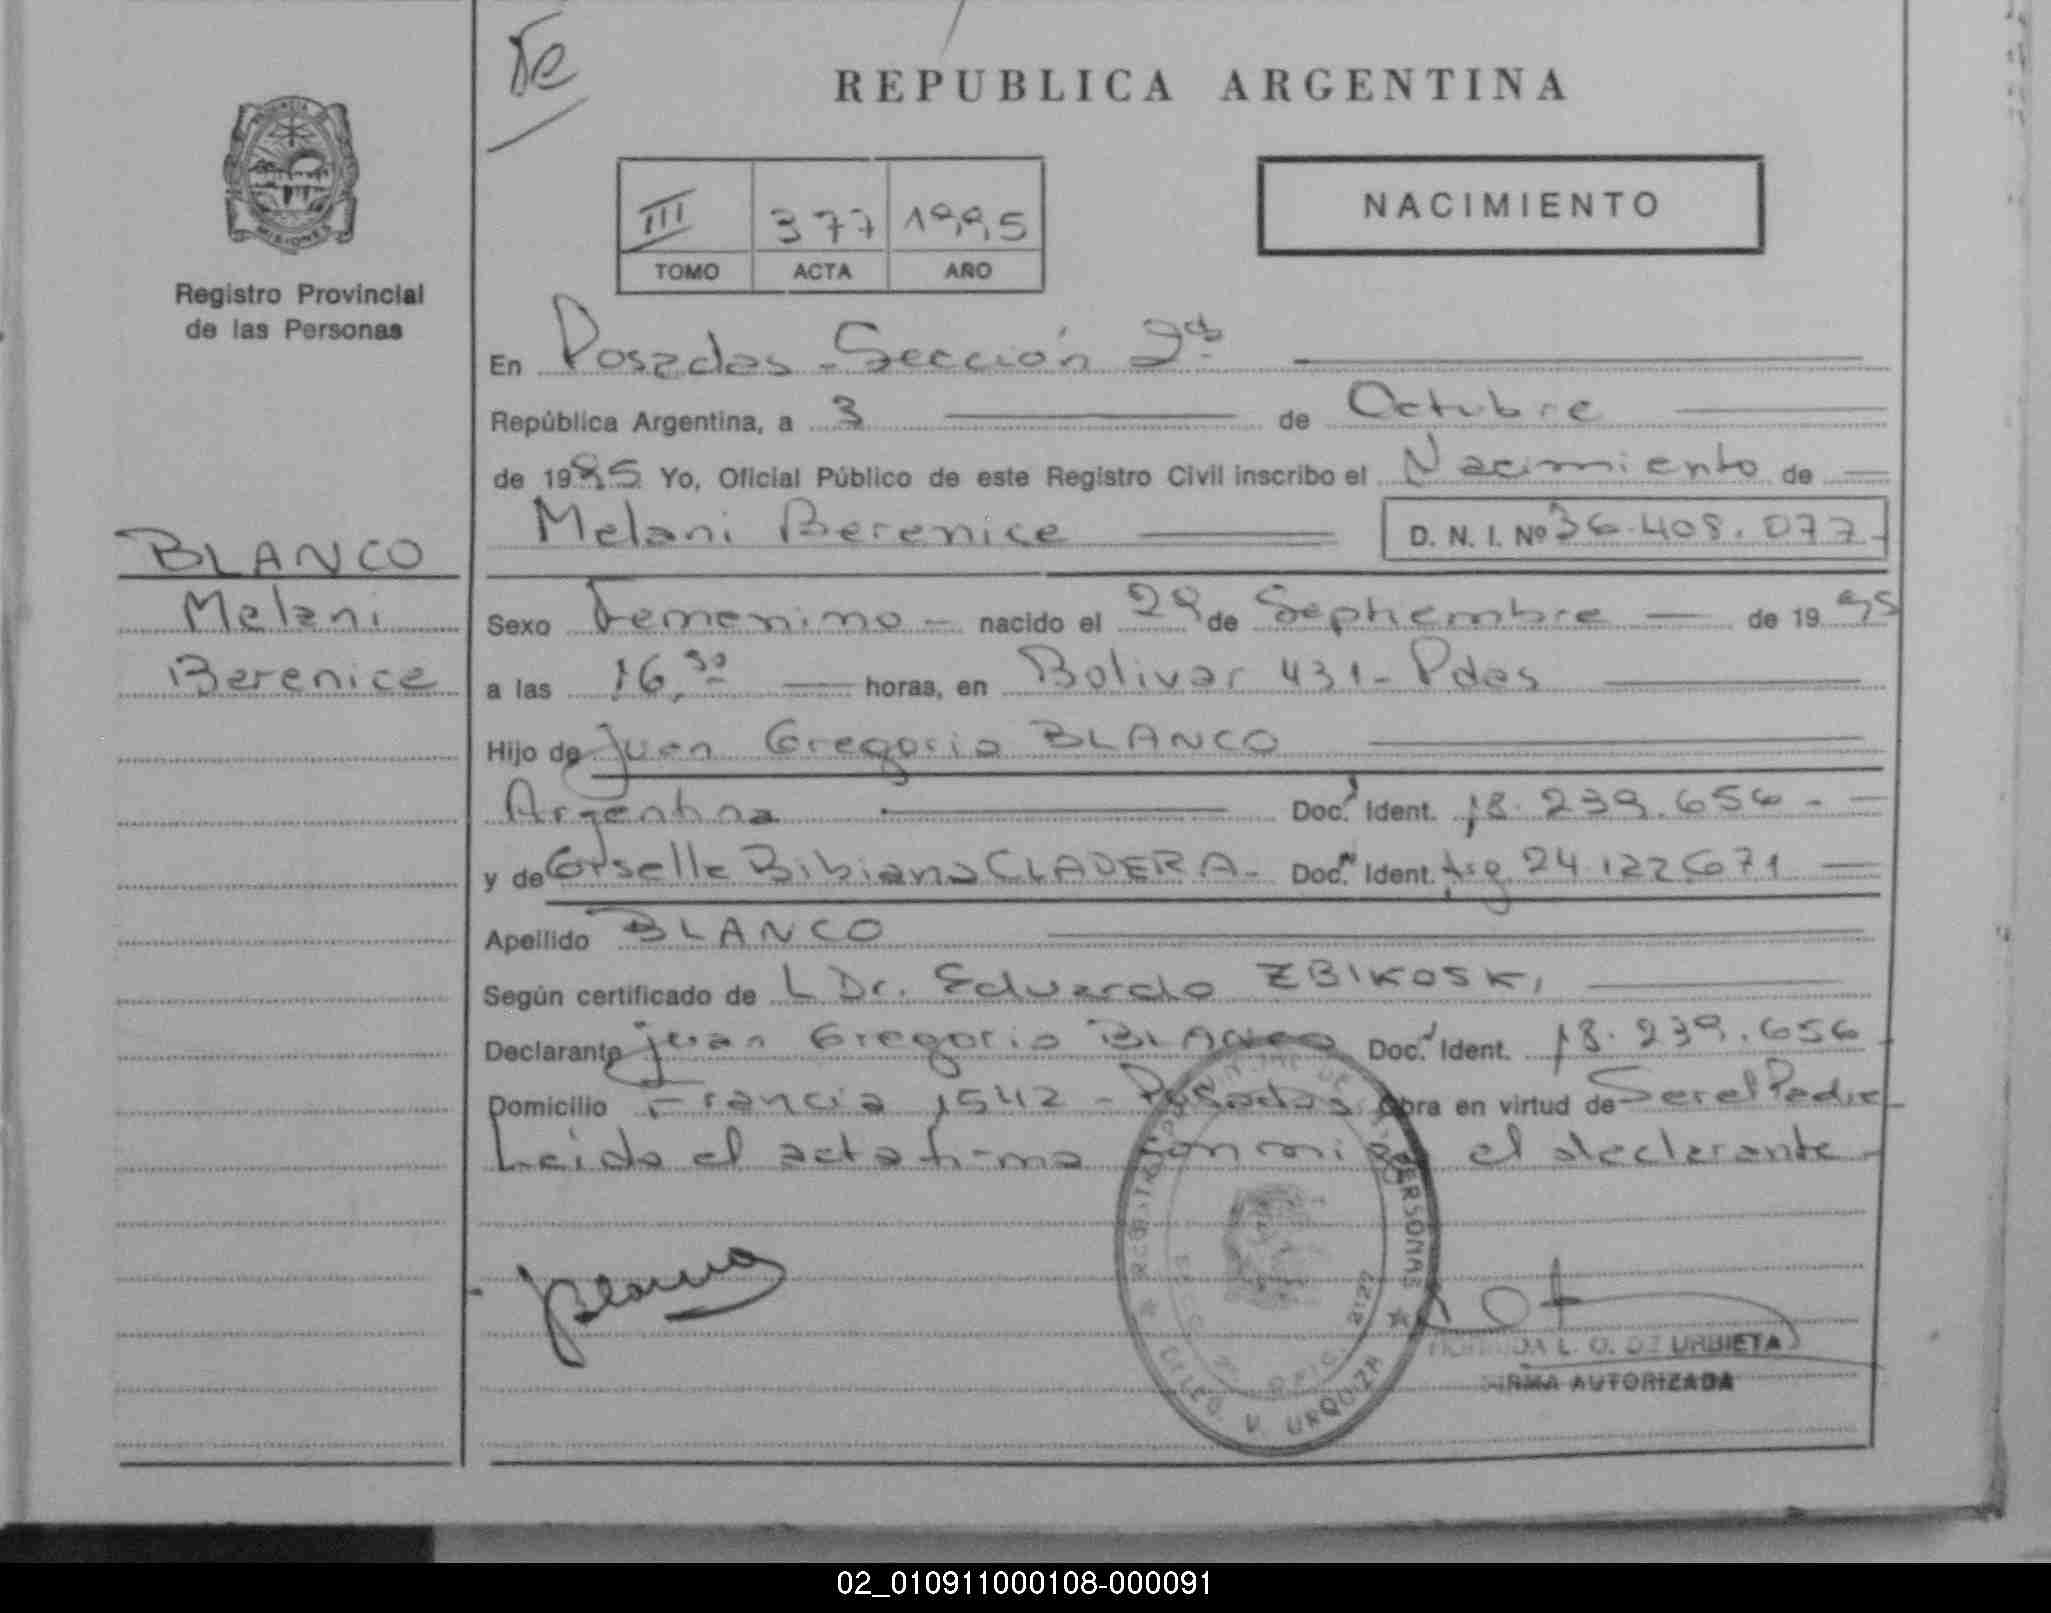 Te
REPUBLICA ARGENTINA
III 377 1995
TOMO ACTA AÑO
NACIMIENTO
MISIONES
Registro Provincial
de las Personas
En Posadas - Sección 2ª
República Argentina, a 3 de Octubre
de 1995 Yo, Oficial Público de este Registro Civil inscribo el Nacimiento de
Melani Berenice D. N. I. Nº 36.408.077
BLANCO
Melani
Berenice
Sexo Femenino - nacido el 29 de Septiembre - de 1995
a las 16,30 horas, en Bolivar 431 - Pdas
Hijo de Juan Gregorio BLANCO
Argentina Doc. Ident. 18.239.656 -
y de Griselle Bibiana CLADERA - Doc. Ident. Arg 24.122.671
Apellido BLANCO
Según certificado de L Dr. Eduardo ZBIKOSKI
Declarante Juan Gregorio BLANCO Doc. Ident. 18.239.656
Domicilio Francia 1542 - Posadas Obra en virtud de Ser el Padre
Leida el acta firma conmigo el declarante -
JBlanco
PERSONAS
DELEG. V. URQUIZA
L. O. DE URBIETA
FIRMA AUTORIZADA
02_010911000108-000091